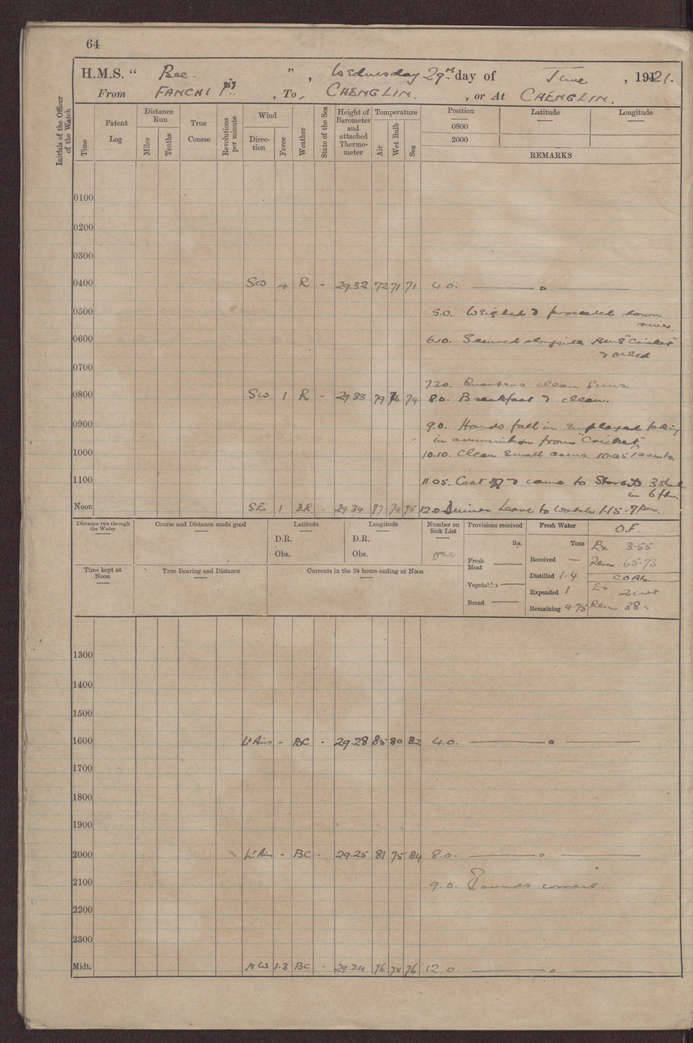 64
H.M.S. " Bee. " , Wednesday 29th day of June , 1921.
From FANCHI , To, CHENGLIN. , or At CHENGLIN.
Initials of the Officer of the Watch
Time
Patent Log
Distance Run
Miles
Tenths
True Course
Revolutions per minute
Wind
Direction
Force
Weather
State of the Sea
Height of Barometer and attached Thermometer
Temperature
Air
Wet Bulb
Sea
Position
Latitude
Longitude
0800
2000
REMARKS
0100
0200
0300
0400 SW 4 R - 29.32 72 71 71 4.0. — o —
0500 5.0. Weighed & proceeded down river
0600 6.10. Secured alongside H.M.S "Cricket" & oiled
0700
7.20. Quarters clean guns
0800 SW 1 R - 29.33 79 74 74 8.0. Breakfast & clean.
0900 9.0. Hands fall in employed taking in ammunition from "Cricket"
1000 10.10. Clean small arms
1100 11.05. Cast off & came to Starboard 3 shackles in 6 fm
Noon SE 1 BR - 29.34 87 76 12.0 Dinner Leave to watch 1.15 - 8 pm.
Distance run through the Water
Course and Distance made good
Latitude
D.R.
Obs.
Longitude
D.R.
Obs.
Number on Sick List
Provisions received
lbs.
Fresh Meat
Vegetables
Bread
Fresh Water
Tons
Received —
Distilled 1.4
Expended 1
Remaining 9.75
O.F.
Ex 3.55
Rem 65.73
COAL
Ex 2 cwt
Rem 38
Time kept at Noon
True Bearing and Distance
Currents in the 24 hours ending at Noon
1300
1400
1500
1600 Lt Airs - BC - 29.28 85 80 82 4.0. — o —
1700
1800
1900
2000 Lt Airs - BC - 29.25 81 75 84 8.0. — o —
2100 9.0. Rounds correct.
2200
2300
Midt. NW 1.2 BC - 29.24 76 74 76 12.0 — o —